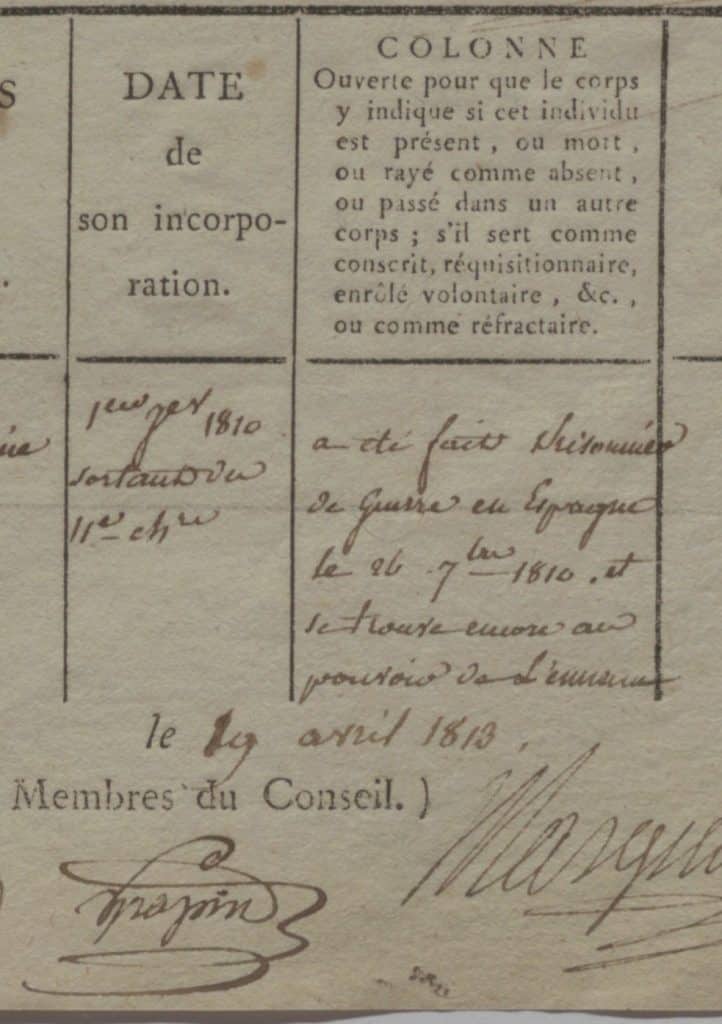 S
DATE
de
son incorpo-
ration.
COLONNE
Ouverte pour que le corps
y indique si cet individu
est présent, ou mort,
ou rayé comme absent,
ou passé dans un autre
corps ; s'il sert comme
conscrit, réquisitionnaire,
enrôlé volontaire, &c.,
ou comme réfractaire.
1er 1810
sortant du
11e
a été fait Prisonnier
de Guerre en Espagne
le 26 7bre 1810. et
se trouve encore au
pouvoir de L'ennemi
le 19 avril 1813.
Membres du Conseil.)